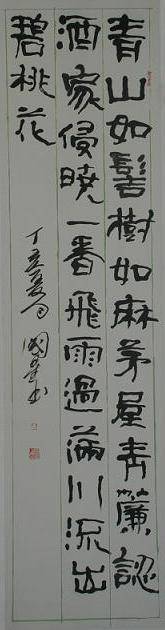 青山如髻樹如麻茅屋青簾認
酒家侵曉一番飛雨過滿川流出
碧桃花
丁亥夏月國書